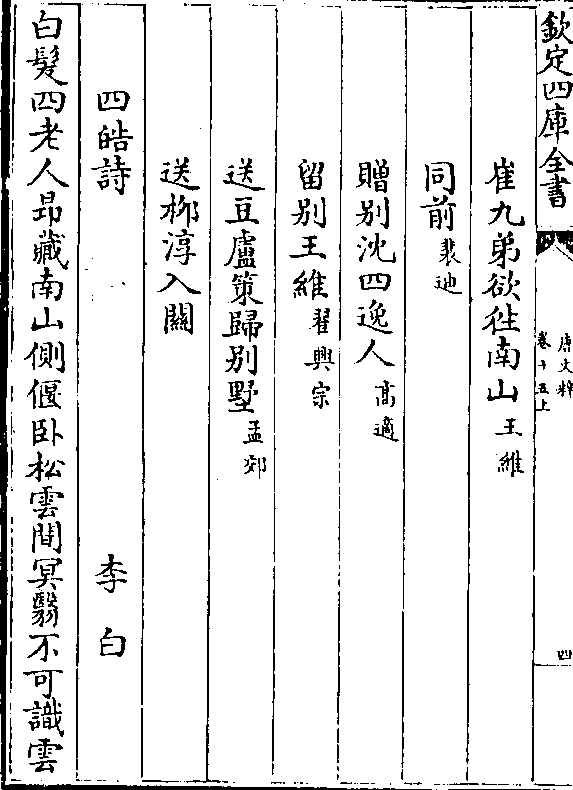 欽定四庫全書
唐文粹
卷十五上
四
崔九弟欲往南山王維
同前裴迪
贈别沈四逸人高適
留别王維翟興宗
送豆盧策歸别墅孟郊
送栁淳入關
四皓詩 李白
白髮四老人昻藏南山側偃臥松雲間冥翳不可識雲